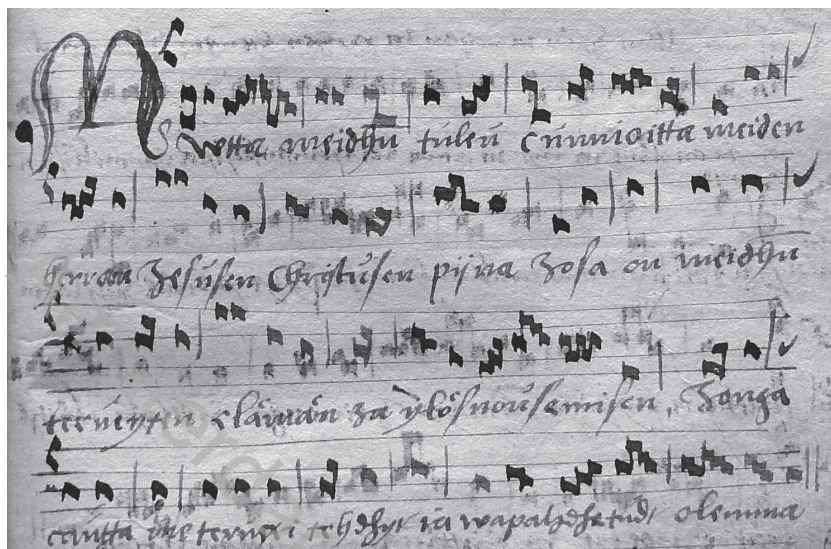 Mutta meidhñ tuleu cunnioitta meiden
herran Jesusen Christusen pijna Josa on meidhñ
terueyten elämän ja ylösnousemisen, Jonga
cautta me terue i tehdhyt ia wapahdhetud olemma